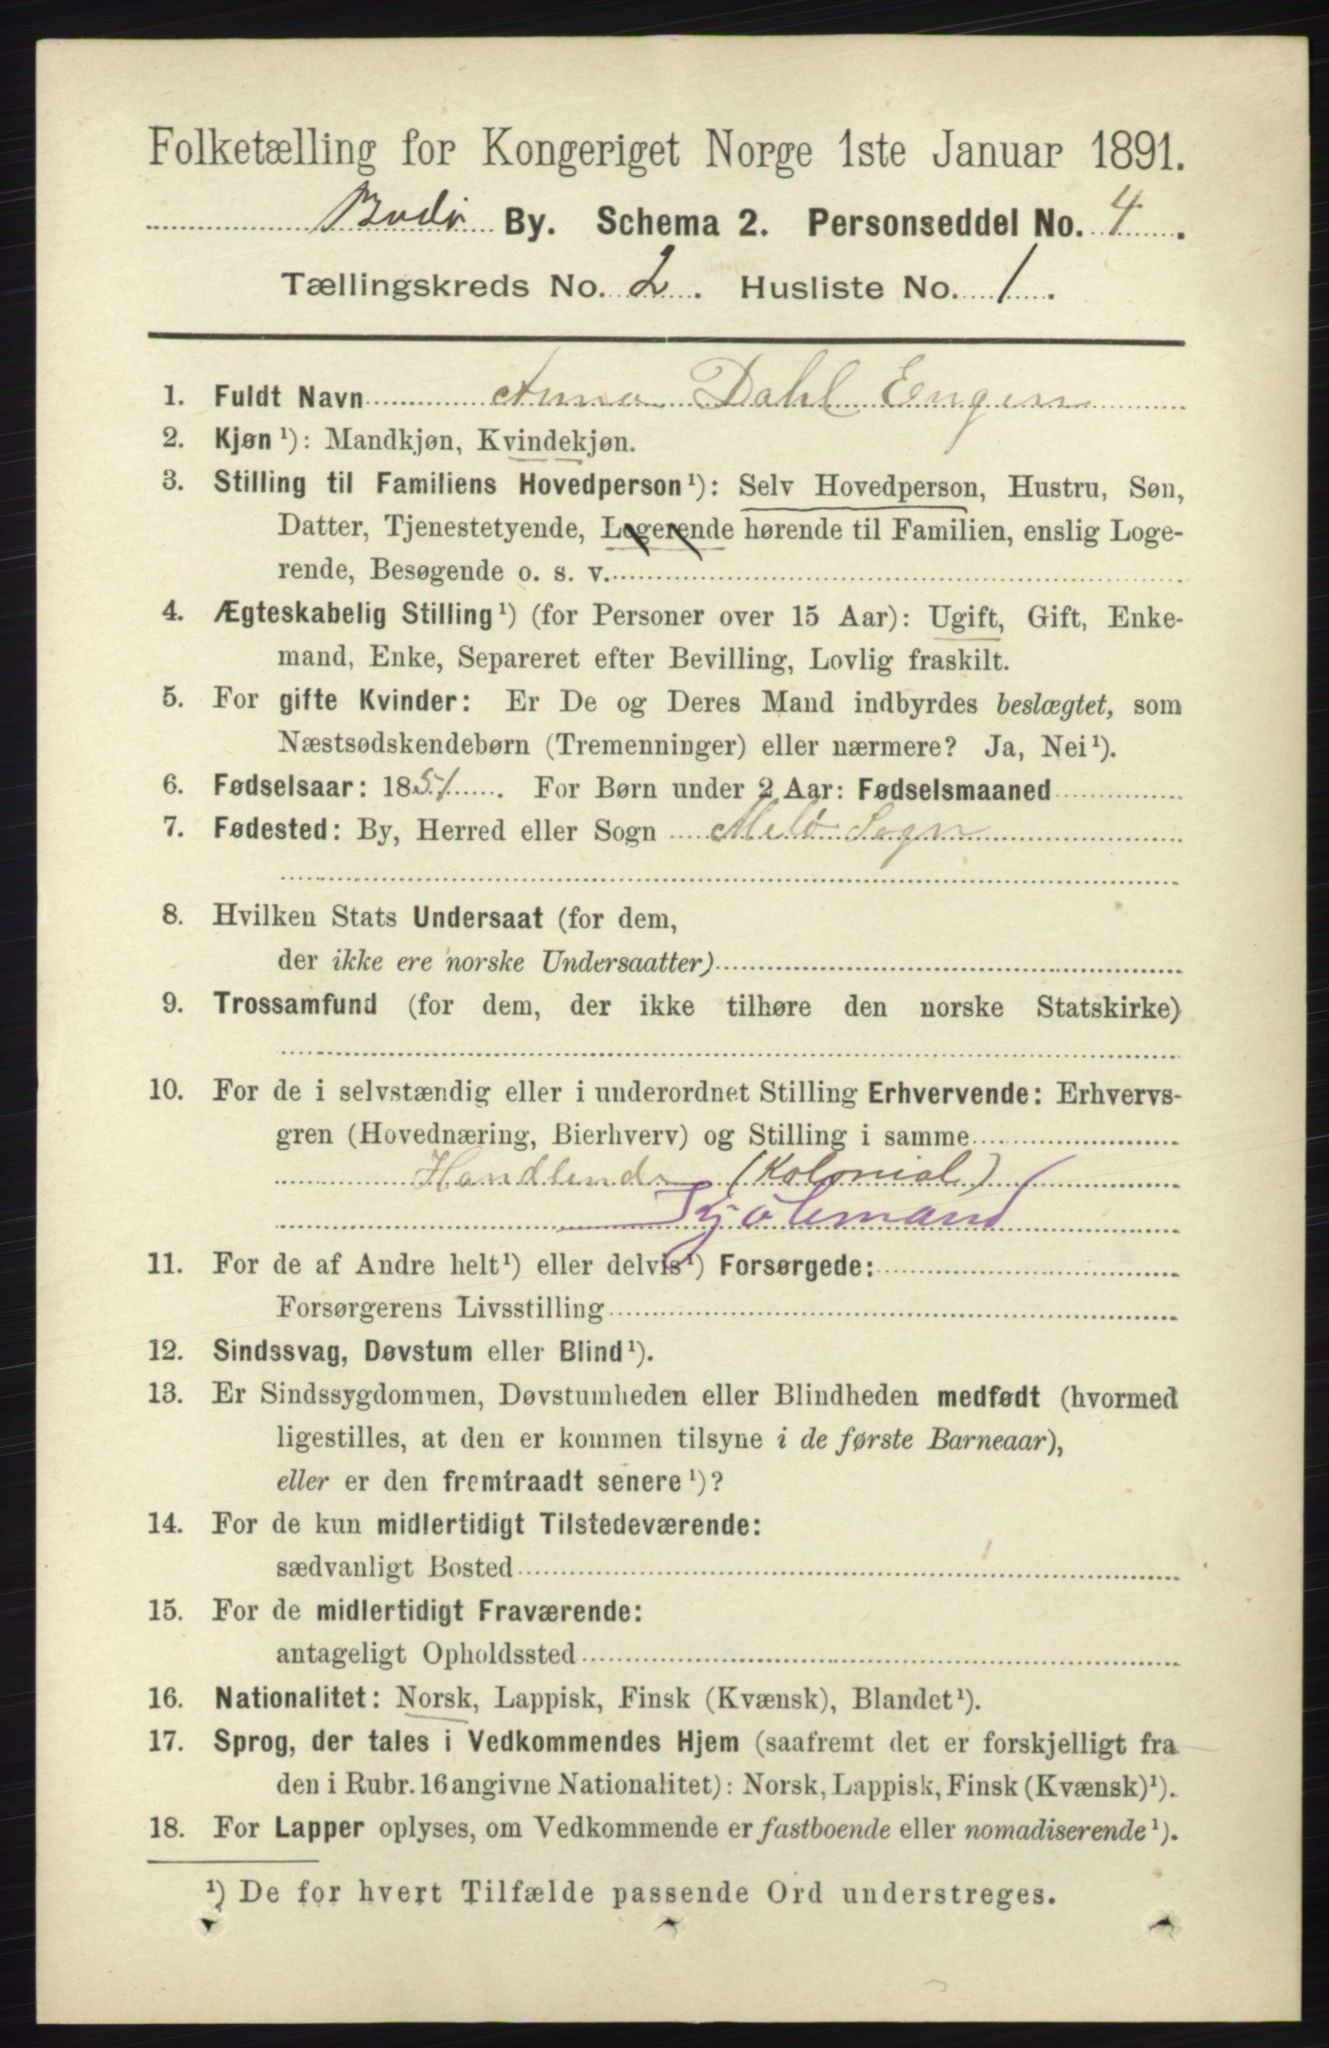 Folketælling for Kongeriget Norge 1ste Januar 1891.
Bodö By. Schema 2. Personseddel No. 4.
Tællingskreds No. 2. Husliste No. 1.
1. Fuldt Navn Anna Dahl Engen
2. Kjøn¹): Mandkjøn, Kvindekjøn.
3. Stilling til Familiens Hovedperson¹): Selv Hovedperson, Hustru, Søn,
Datter, Tjenestetyende, Logerende hørende til Familien, enslig Loge-
rende, Besøgende o. s. v.
4. Ægteskabelig Stilling¹) (for Personer over 15 Aar): Ugift, Gift, Enke-
mand, Enke, Separeret efter Bevilling, Lovlig fraskilt.
5. For gifte Kvinder: Er De og Deres Mand indbyrdes beslægtet, som
Næstsødskendebørn (Tremenninger) eller nærmere? Ja, Nei¹).
6. Fødselsaar: 1851. For Børn under 2 Aar: Fødselsmaaned
7. Fødested: By, Herred eller Sogn Melö Sogn
8. Hvilken Stats Undersaat (for dem,
der ikke ere norske Undersaatter)
9. Trossamfund (for dem, der ikke tilhøre den norske Statskirke)
10. For de i selvstændig eller i underordnet Stilling Erhvervende: Erhvervs-
gren (Hovednæring, Bierhverv) og Stilling i samme
Handlende (Kolonial)
11. For de af Andre helt¹) eller delvis¹) Forsørgede:
Forsørgerens Livsstilling
12. Sindssvag, Døvstum eller Blind¹).
13. Er Sindssygdommen, Døvstumheden eller Blindheden medfødt (hvormed
ligestilles, at den er kommen tilsyne i de første Barneaar),
eller er den fremtraadt senere¹)?
14. For de kun midlertidigt Tilstedeværende:
sædvanligt Bosted
15. For de midlertidigt Fraværende:
antageligt Opholdssted
16. Nationalitet: Norsk, Lappisk, Finsk (Kvænsk), Blandet¹).
17. Sprog, der tales i Vedkommendes Hjem (saafremt det er forskjelligt fra
den i Rubr. 16 angivne Nationalitet): Norsk, Lappisk, Finsk (Kvænsk)¹).
18. For Lapper oplyses, om Vedkommende er fastboende eller nomadiserende¹).
¹) De for hvert Tilfælde passende Ord understreges.